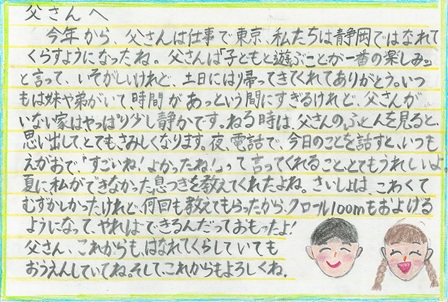 父さんへ
今年から、父さんは仕事で東京、私たちは静岡ではなれて
くらすようになったね。父さんは「子どもと遊ぶことが一番の楽しみ」
と言って、いそがしいけれど、土日には帰ってきてくれてありがとう。いつ
もは妹や弟がいて時間があっという間にすぎるけれど、父さんが
いない家はやっぱり少し静かです。ねる時は、父さんのふとんを見ると、
思い出してとてもさみしくなります。夜、電話で、今日のことを話すと、いつも
えがおで「すごいね!よかったね!」って言ってくれること、とてもうれしいよ。
夏に私ができなかった息つきを教えてくれたよね。さいしょは、こわくて
むずかしかったけれど、何回も教えてもらったから、クロール100mもおよげる
ようになって、やればできるんだっておもったよ!
父さん、これからも、はなれてくらしていても
おうえんしていてね。そして、これからもよろしくね。